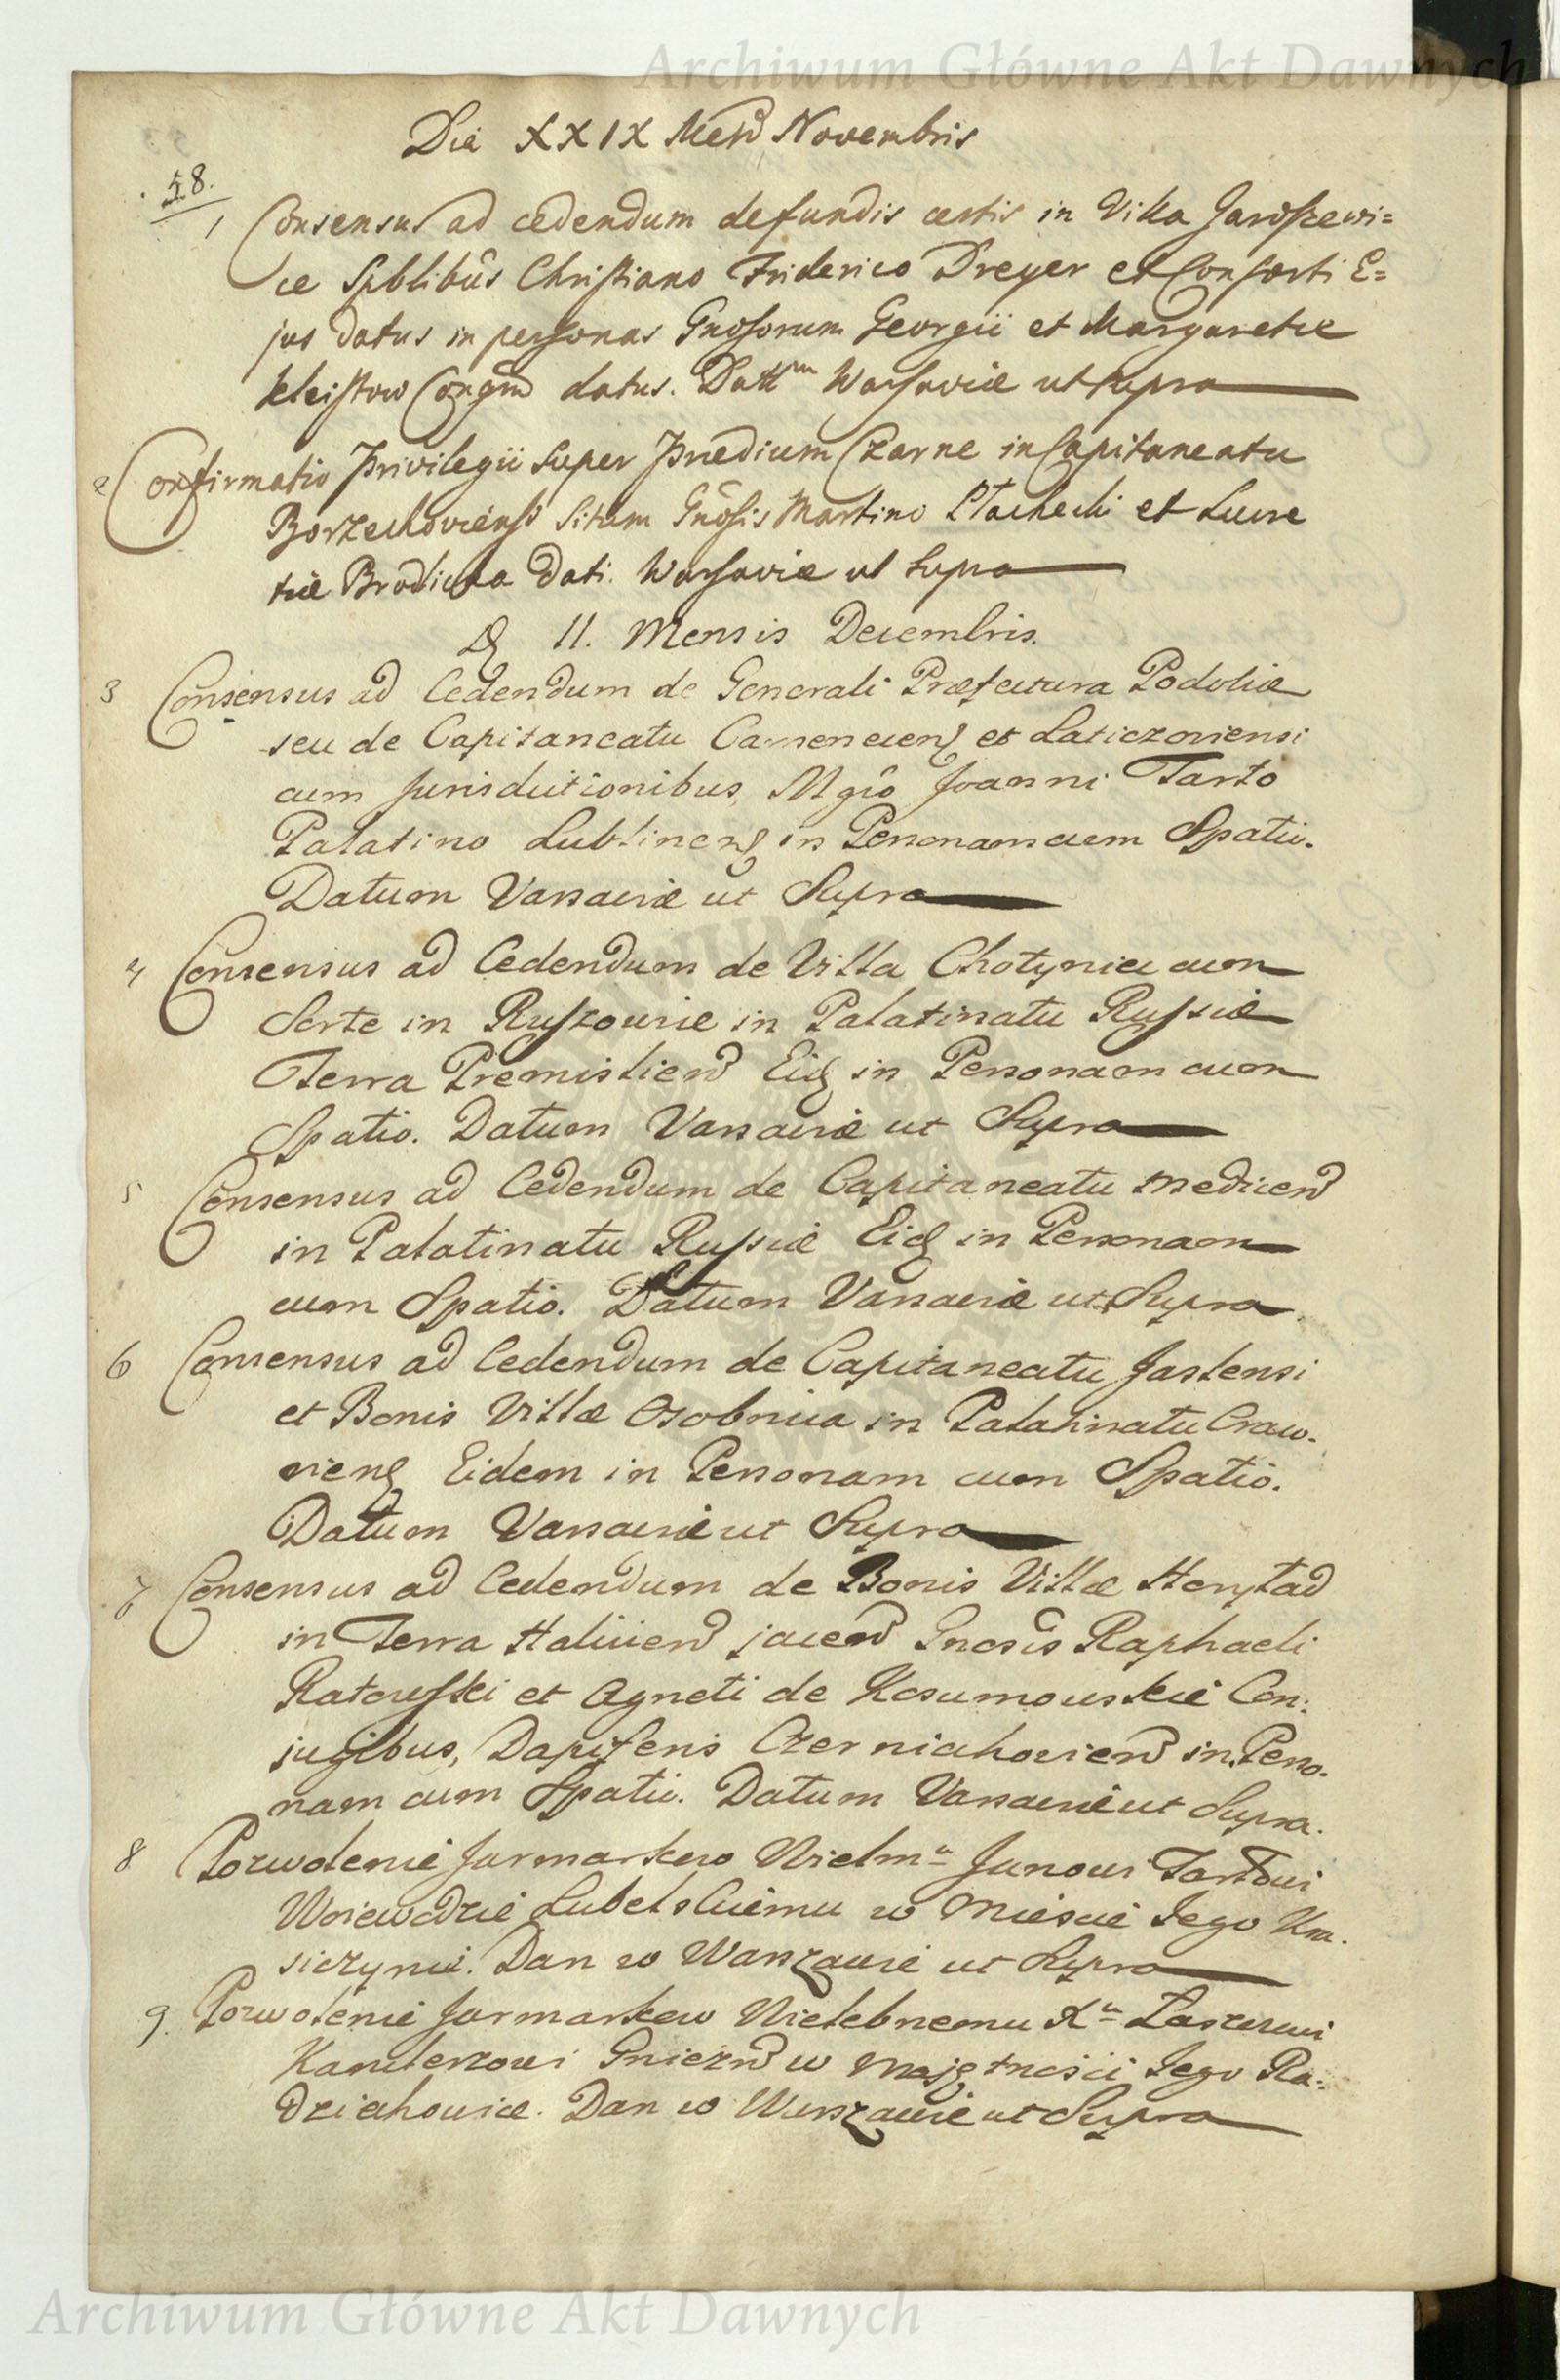 Archiwum Główne Akt Dawnych
Die XXIX Mens Novembris
58.
1 Consensus ad cedendum de fundis certis in Villa Jaroszewi=
ce Spblibus Christiano Friderico Dreyer et Consorti E=
jus datus in personas Gnosorum Georgii et Margaretæ
Kleistow Congm datus. Dattum Warsaviæ ut supra
2 Confirmatio Privilegii super Prædium Czarne in Capitaneatu
Borzechoviensi situm Gnosis Martino Ptachecki et Lucre
tiæ Brodicka dati. Warsaviæ ut supra
D 11. Mensis Decembris.
3 Consensus ad Cedendum de Generali Præfectura Podoliæ
seu de Capitaneatu Camenecens et Laticzoviensi
cum Jurisductionibus Mgco Joanni Tarło
Palatino Lublinens in Personam cum Spatio.
Datum Varsaviæ ut Supra
4 Consensus ad Cedendum de Villa Chotyniec cum
Sorte in Ruszowie in Palatinatu Russiæ
Terra Premisliens Eid in Personam cum
Spatio. Datum Varsaviæ ut Supra
5 Consensus ad Cedendum de Capitaneatu Medicens
in Palatinatu Russiæ Eid in Personam
cum Spatio. Datum Varsaviæ ut Supra
6 Consensus ad Cedendum de Capitaneatu Jaslensi
et Bonis Villæ Osobnica in Palatinatu Craco-
viens Eidem in Personam cum Spatio.
Datum Varsaviæ ut Supra
7 Consensus ad Cedendum de Bonis Villæ
in Terra Haliciens jacens Gnosis Raphaeli
et Agneti de Con:
jugibus, Dapiferis Czerniahoviens in Perso-
nam cum Spatio. Datum Varsaviæ ut Supra.
8 Pozwolenie Jarmarkow Wielmu Janowi Tarłowi
Woiewodzie Lubelskiemu w Miescie Jego Kra-
siczynie. Dan w Warszawie ut Supra
9. Pozwolenie Jarmarkow Wielebnemu Xu Łaszczowi
Kanclerzowi Gniezn w Majętnosci Jego Ra-
dziehowice. Dan w Warszawie ut Supra
Archiwum Główne Akt Dawnych